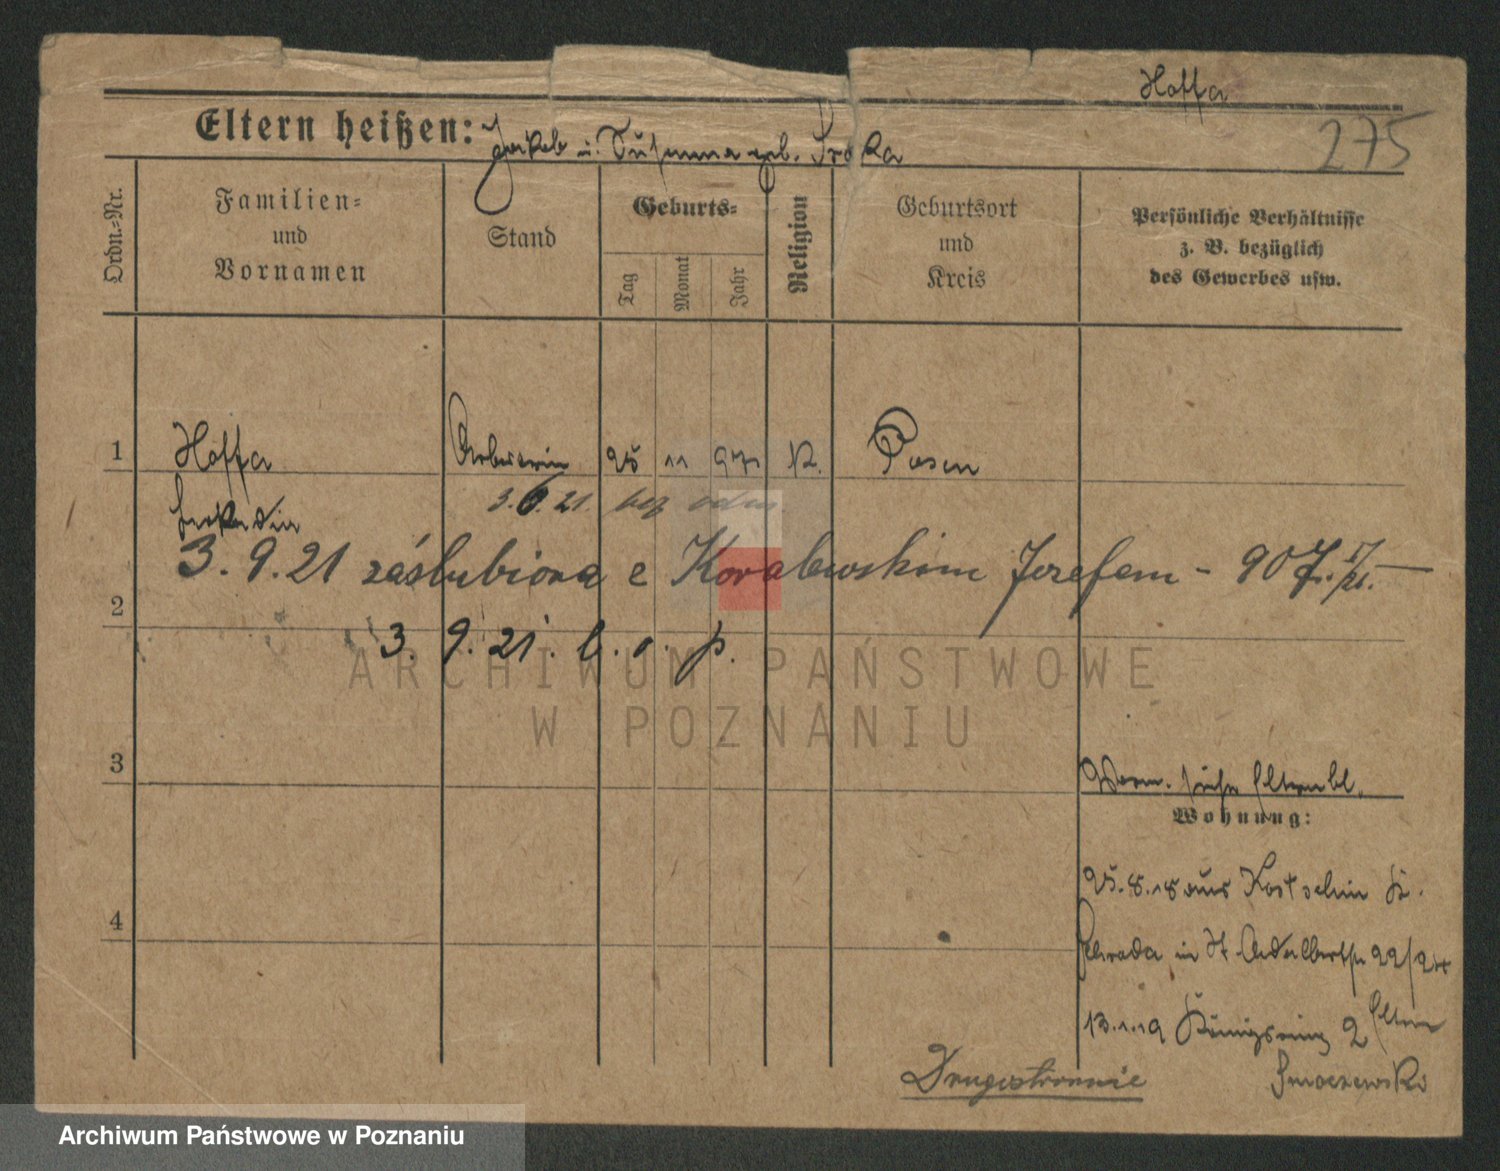 Hoffa
275
Eltern heißen: Jakob u. Susanna geb. Sroka
Ordn.-Nr.
Familien-
und
Vornamen
Stand
Geburts-
Tag
Monat
Jahr
Religion
Geburtsort
und
Kreis
Persönliche Verhältnisse
z. B. bezüglich
des Gewerbes usw.
1 Hoffa Arbeiterin 25 11 97 K. Posen
3.6.21. bez odm.
3.9.21 zaślubiona z Kowalewskim Józefem -
2
3. 9. 21. b. o. p.
ARCHIWUM PAŃSTWOWE
W POZNANIU
3
Worm. siehe Elternbl.
Wohnung:
25.8.18 aus Kostschin K.
4
Schroda in St. Adalbertstr 22/24
13.1.19 Königsring 2 Eltern
Drugostronnie
Smoczewski
Archiwum Państwowe w Poznaniu